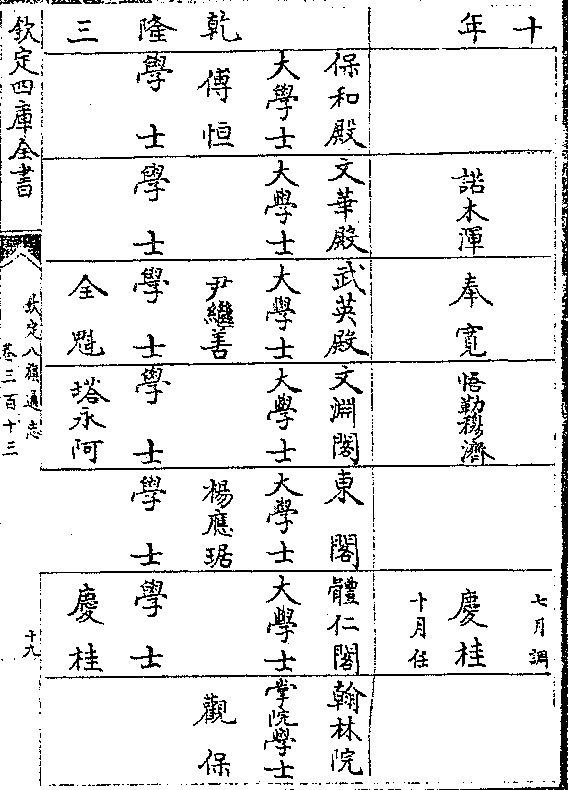 十年
七月調
諾木渾
奉寬
悟勒穆濟
慶桂
十月任
乾隆三
保和殿
大學士
傅恒
學士
文華殿
大學士
學士
武英殿
大學士
尹繼善
學士
全魁
文淵閣
大學士
學士
塔永阿
東閣
大學士
楊應琚
學士
體仁閣
大學士
學士
慶桂
翰林院
掌院學士
觀保
欽定四庫全書
欽定八旗通志
卷三百十三
十九